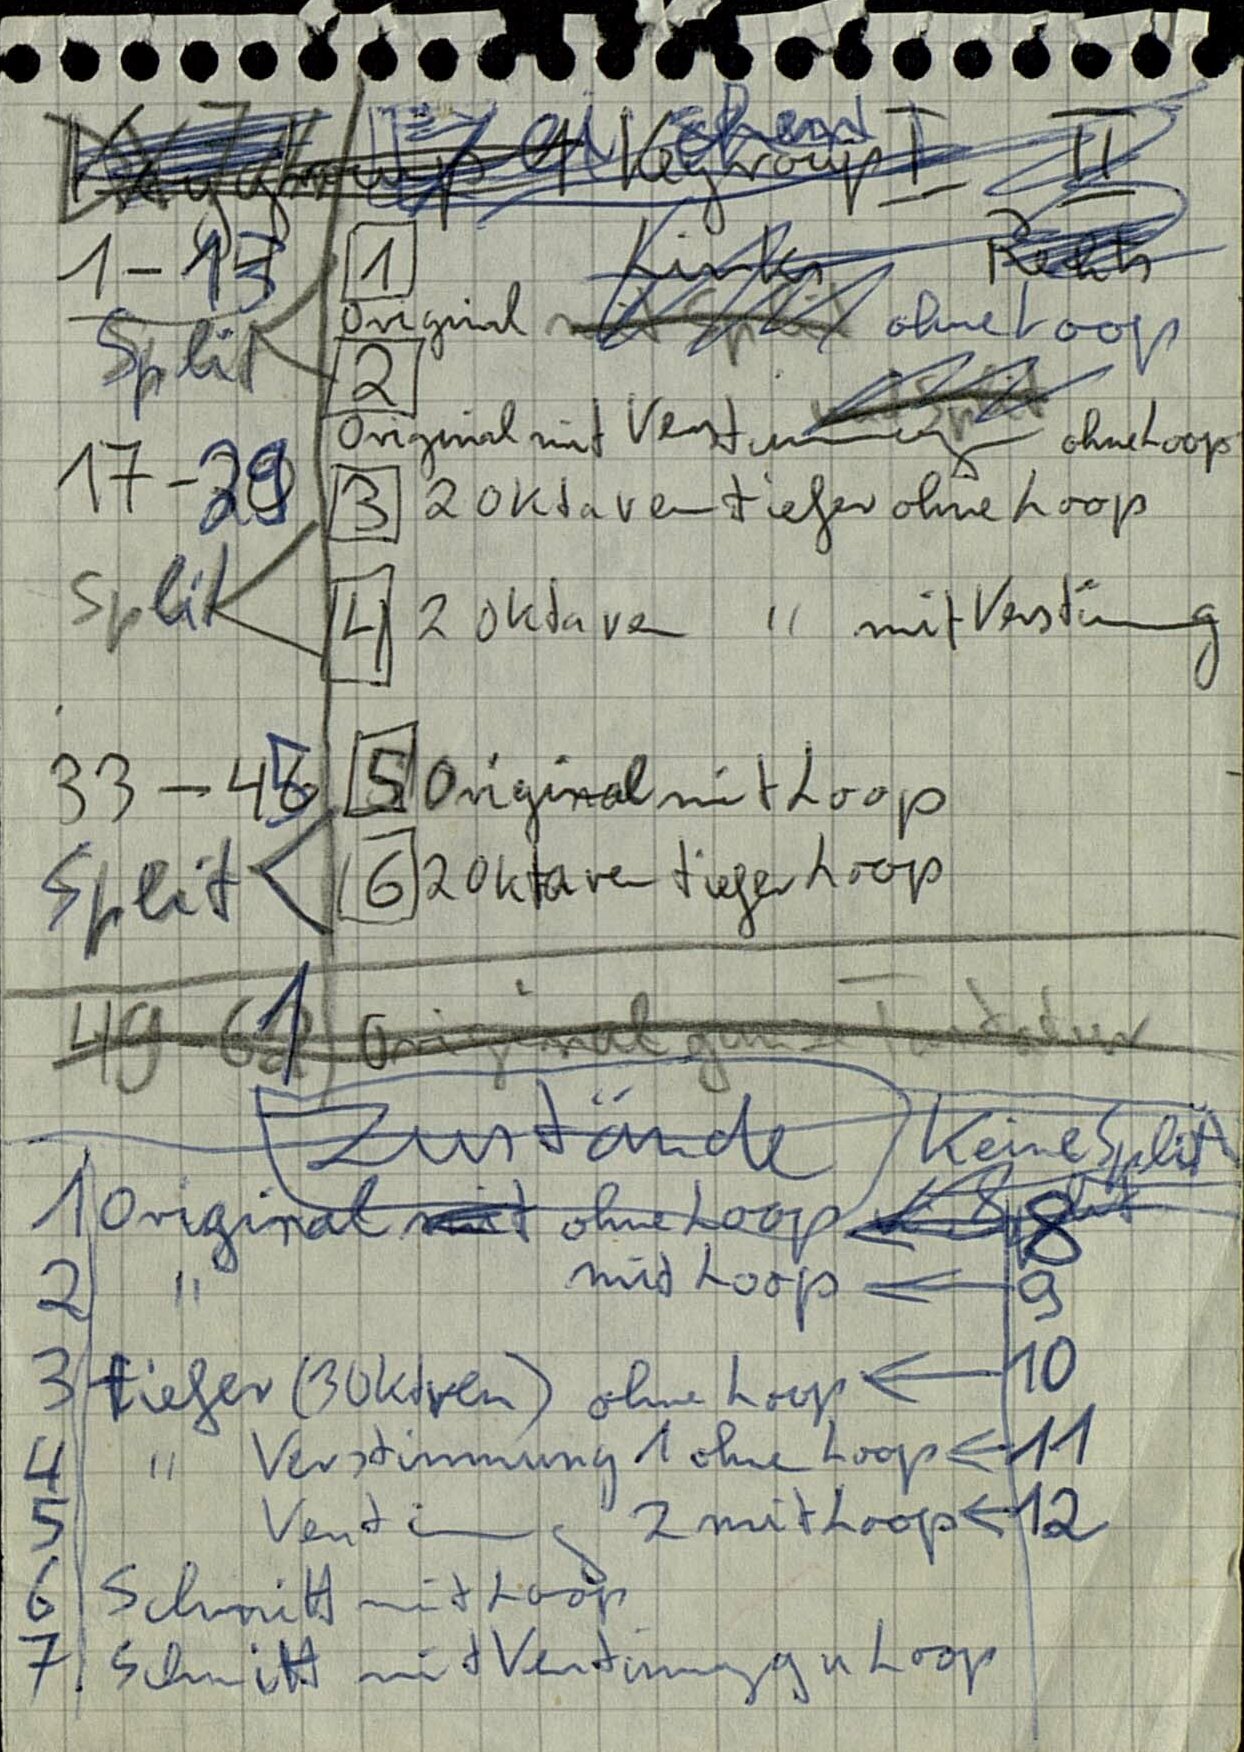 Zeichen
Keygroup I II
Links Rechts
1-13 1
Original mit Split ohne Loop
Split 2
Original mit Verstimmung ohne Loop
17-29 3 2 Oktaven tiefer ohne Loop
Split 4 2 Oktaven " mit Verstimmung
33-45 5 Original mit Loop
Split 6 2 Oktaven tiefer Loop
49-61 Original ganze Tastatur
Zustände Keine Split
1 Original mit ohne Loop ← 8
2 " mit Loop ← 9
3 tiefer (3 Oktaven) ohne Loop ← 10
4 " Verstimmung 1 ohne Loop ← 11
5 Verstimmung 2 mit Loop ← 12
6 Schnitt mit Loop
7. Schnitt mit Verstimmung u Loop